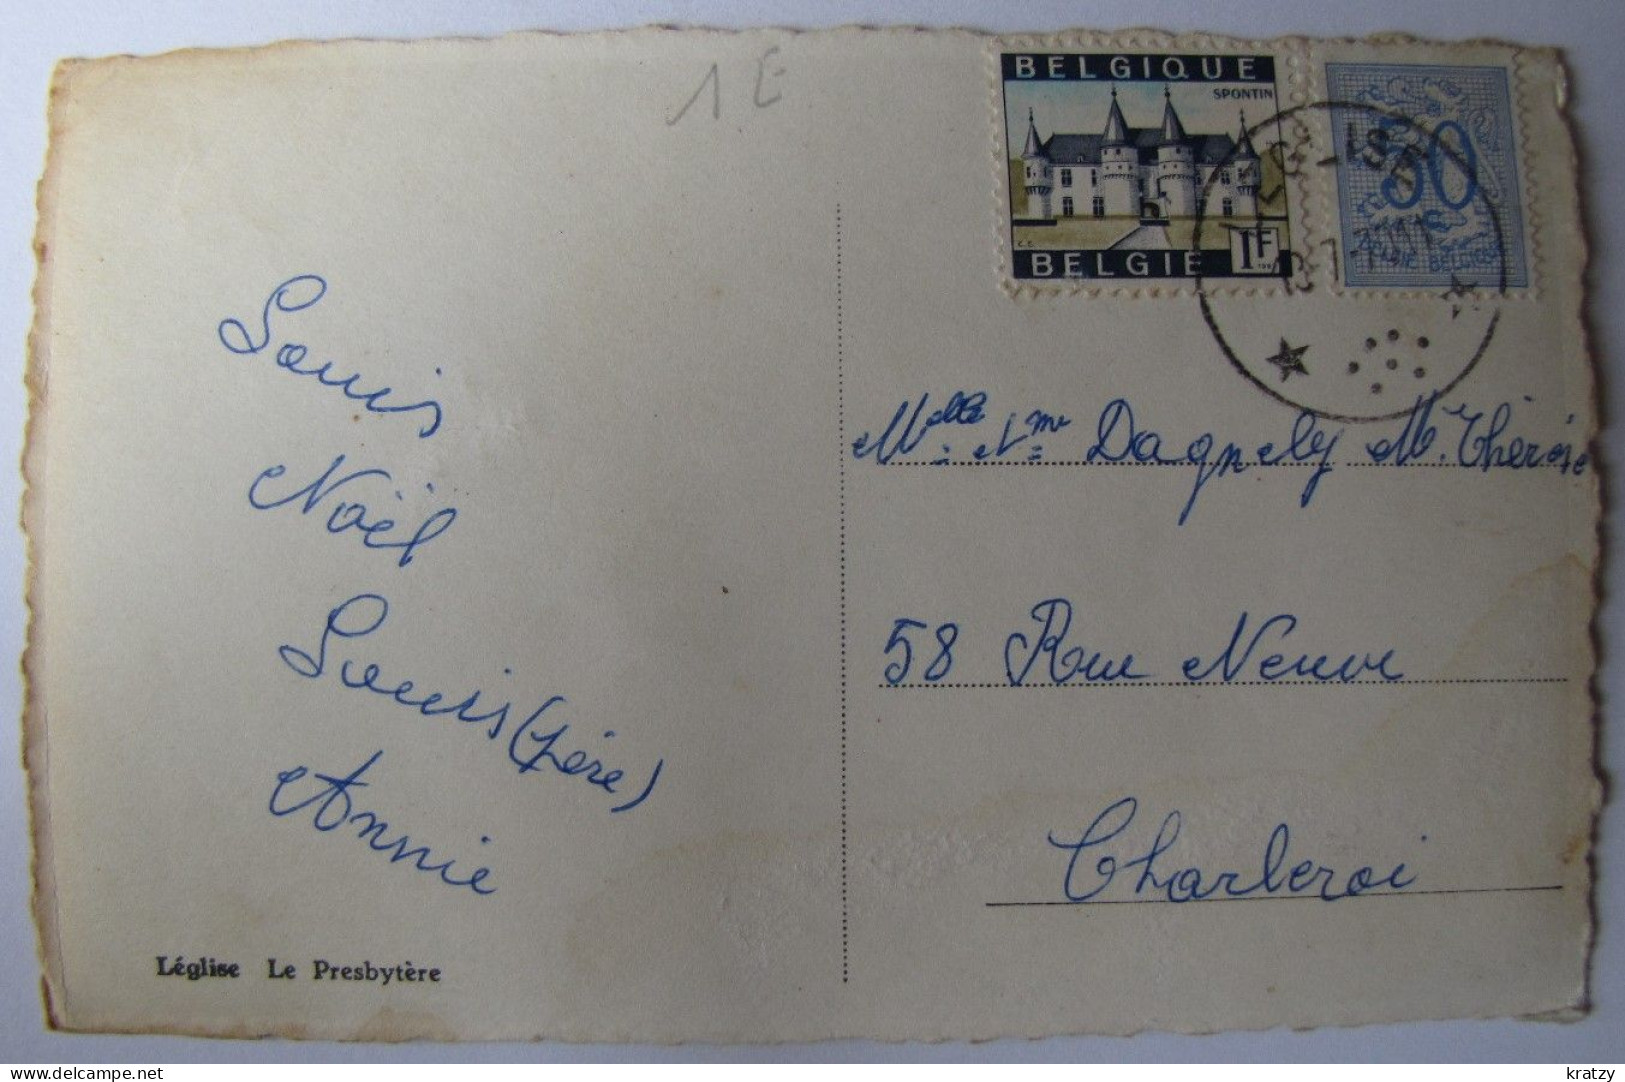 1 E
BELGIQUE
SPONTIN
1F
BELGIE
50
BELGIE BELGIQUE
Louis
Noël
Louis (père)
Annie
Mlle Dagnely M. Thérèse
58 Rue Neuve
Charleroi
Léglise Le Presbytère
kratzy